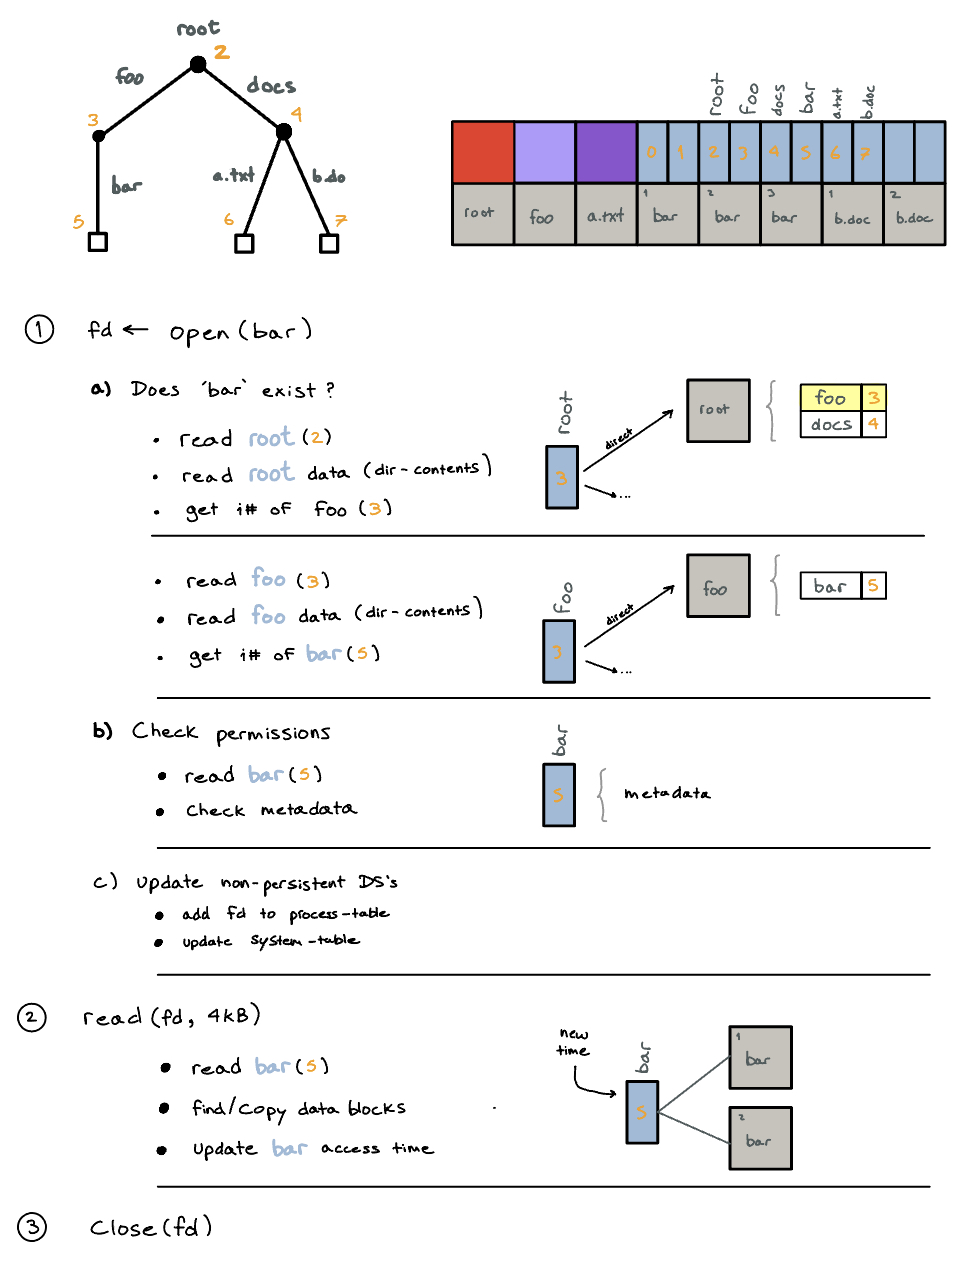 root
2
foo
docs
3
4
bar
a.txt
b.do
5
6
7
root
foo
docs
bar
a.txt
b.doc
0 1 2 3 4 5 6 7
root
foo
a.txt
1 bar
2 bar
3 bar
1 b.doc
2 b.doc
① fd ← open(bar)
a) Does 'bar' exist?
• read root (2)
• read root data (dir-contents)
• get i# of foo (3)
root
3
direct
...
root
foo 3
docs 4
• read foo (3)
• read foo data (dir-contents)
• get i# of bar (5)
foo
3
direct
...
foo
bar 5
b) Check permissions
• read bar (5)
• Check metadata
bar
5
metadata
c) update non-persistent DS's
• add fd to process-table
• update system-table
② read(fd, 4kB)
• read bar (5)
• find/copy data blocks
• update bar access time
new
time
bar
5
1
bar
2
bar
③ Close(fd)